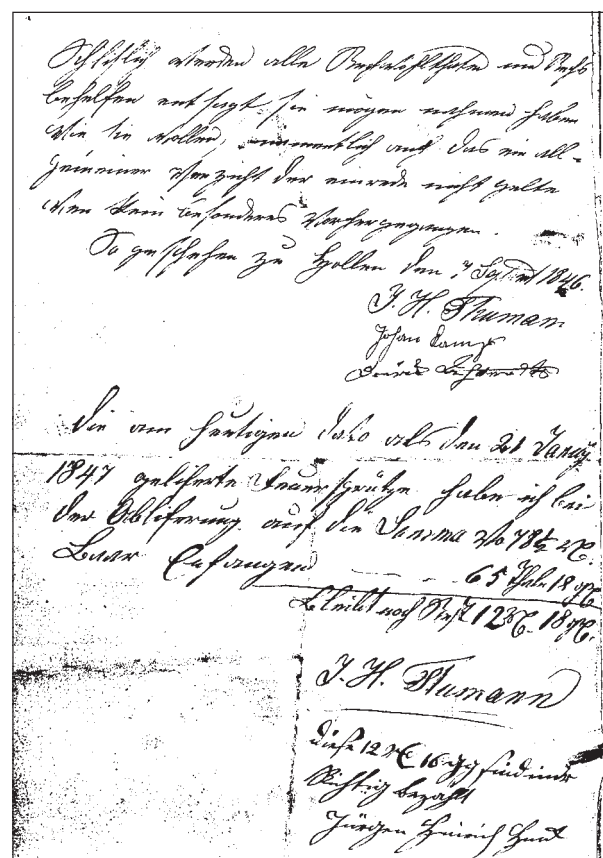 Schließlich werden alle Rechtswohlthaten und Rechts
behelfen entsagt sie mögen nahmen haben
wie sie wollen, namentlich auch das ein all-
gemeiner Verzicht der einrede nicht gelte
wen kein besonderes vorhergegangen.
So geschehen zu Hollen den 7 Septbr 1846.
J. H. Thumann
Johan Kamp
die am heutigen dato als den 21 Januy
1847 gelieferte Feuersprütze habe ich bei
der Ablieferung auf die Summa von 78½ rt.
Baar Enfangen 65 Thaler 18 gg
Bleibt noch Rest 12 rt. 18 gg.
J. H. Thumann
diese 12 rt 18 gg sind mir
Richtig bezahlt
Jürgen Hinrich